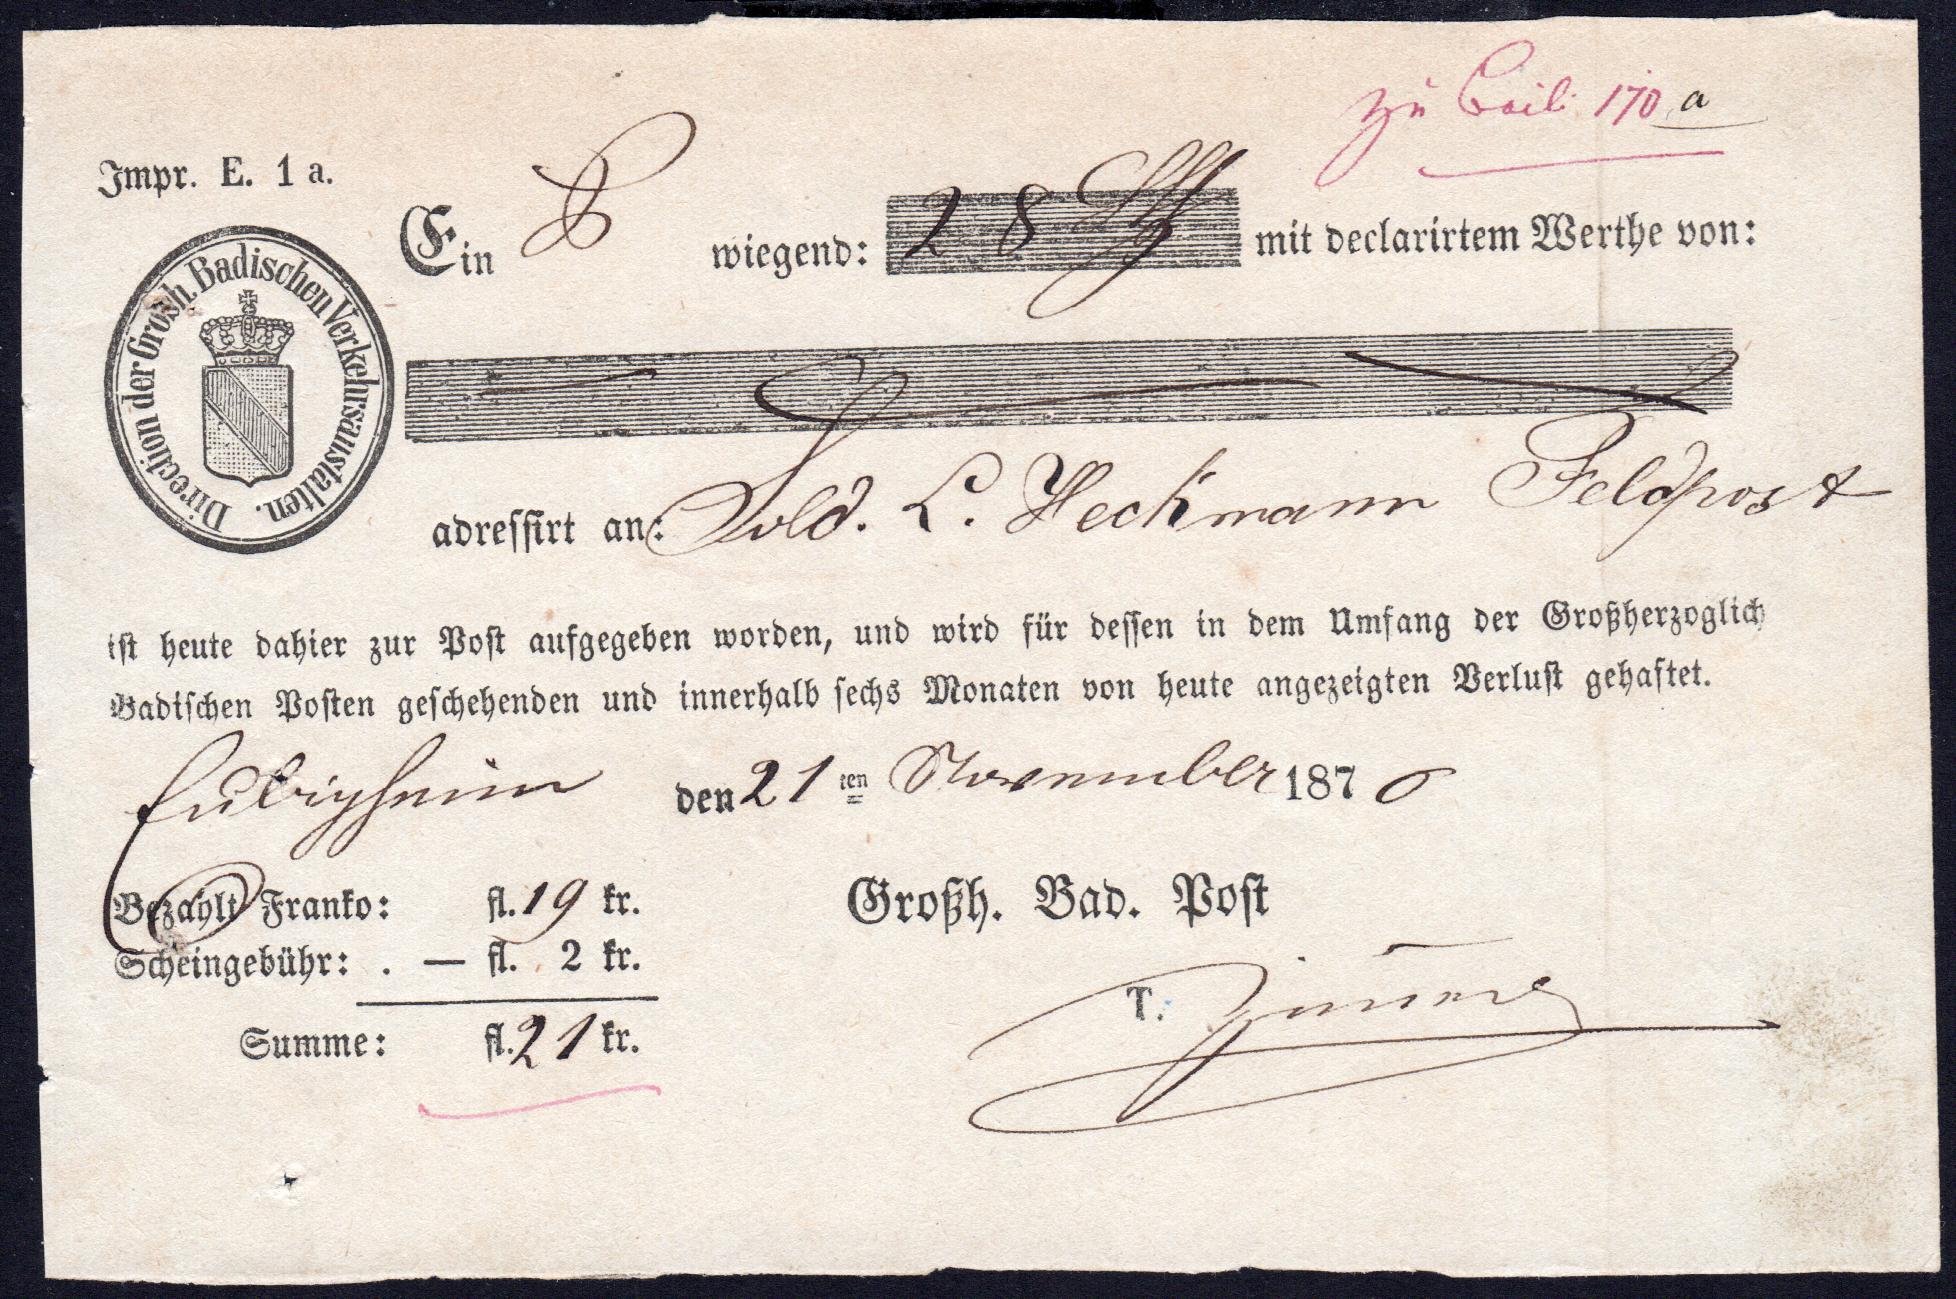 zu Beil. 170 a
Impr. E. 1 a.
Ein P wiegend: 2 8 mit declarirtem Werthe von:
Direction der Grosh. Badischen Verkehrsanstalten.
adressirt an: Sold. L. Heckmann Feldpost
ist heute dahier zur Post aufgegeben worden, und wird für dessen in dem Umfang der Großherzoglich
Badischen Posten geschehenden und innerhalb sechs Monaten von heute angezeigten Verlust gehaftet.
Eubigheim den 21 ten November 1870
Bezahlt Franko: fl. 19 kr.
Scheingebühr: . — fl. 2 kr.
Summe: fl. 21 kr.
Großh. Bad. Post
T.